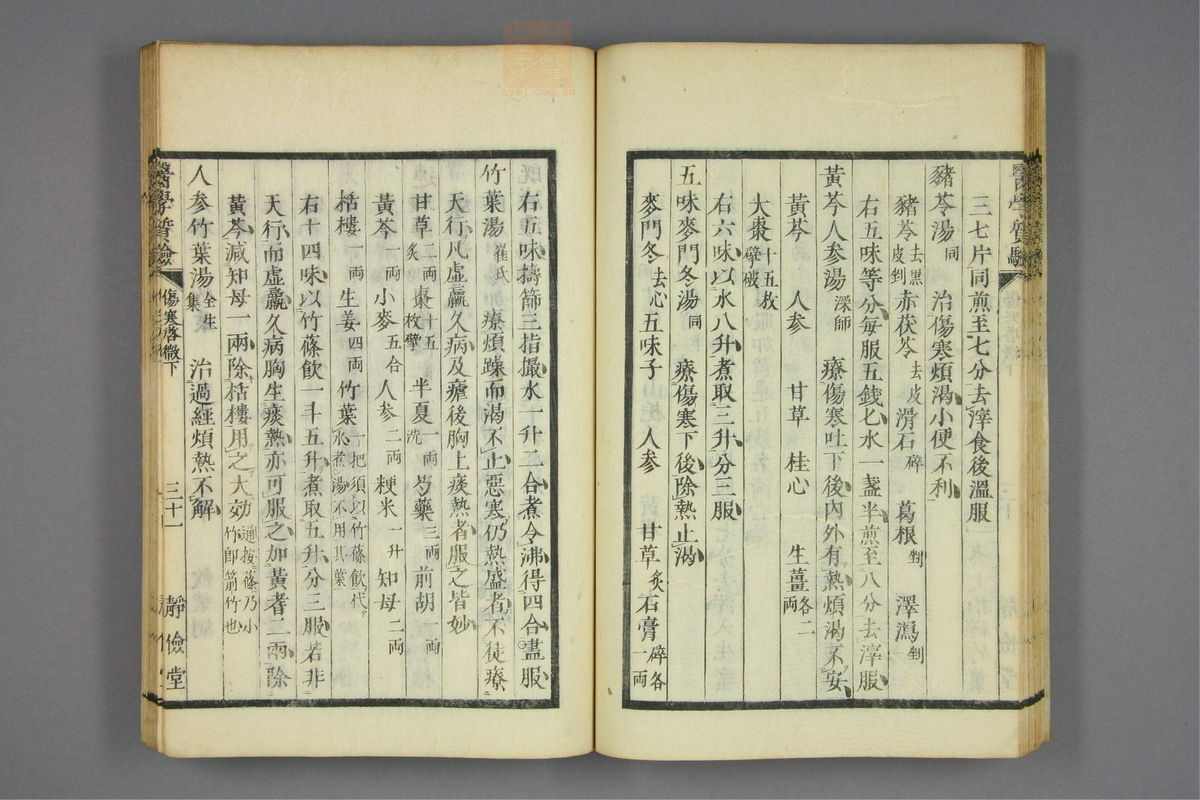 三七片同煎至七分去滓食後溫服
豬苓湯 同 治傷寒煩渴小便不利
豬苓 去黑皮剉 赤茯苓 去皮 滑石 碎 葛根 剉 澤瀉 剉
右五味等分每服五錢匕水一盞半煎至八分去滓服
黃芩人參湯 深師 療傷寒吐下後內外有熱煩渴不安
黃芩 人參 甘草 桂心 生薑 各二兩
大棗 十五枚擘破
右六味以水八升煮取三升分三服
五味麥門冬湯 同 療傷寒下後除熱止渴
麥門冬 去心 五味子 人參 甘草 炙 石膏 碎各一兩
右五味擣篩三指撮水一升二合煮令沸得四合盡服
竹葉湯 崔氏 療煩躁而渴不止惡寒仍熱盛者不徒療
天行凡虛羸久病及瘧後胸上痰熱者服之皆妙
甘草 二兩炙 棗 十五枚擘 半夏 一兩洗 芍藥 三兩 前胡 一兩
黃芩 一兩 小麥 五合 人參 二兩 粳米 一升 知母 二兩
栝樓 一兩 生姜 四兩 竹葉 一把須以竹篠飲代水煮湯不用其葉
右十四味以竹篠飲一斗五升煮取五升分三服若非
天行而虛羸久病胸生痰熱亦可服之加黃耆二兩除
黃芩減知母一兩除栝樓用之大効 通按篠乃小竹即箭竹也
人參竹葉湯 全生集 治過經煩熱不解
醫學質驗
傷寒啓微下
三十一
靜儉堂